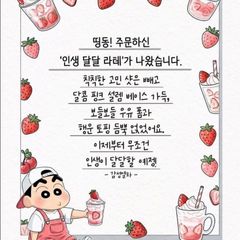 띵동! 주문하신
'인생 달달 라떼'가 나왔습니다.
칙칙한 고민 샷은 빼고
달콤 핑크 설렘 베이스 가득,
보들보들 우유 폼과
행운 토핑 듬뿍 얹었어요.
이제부터 무조건
인생이 달달할 예정!